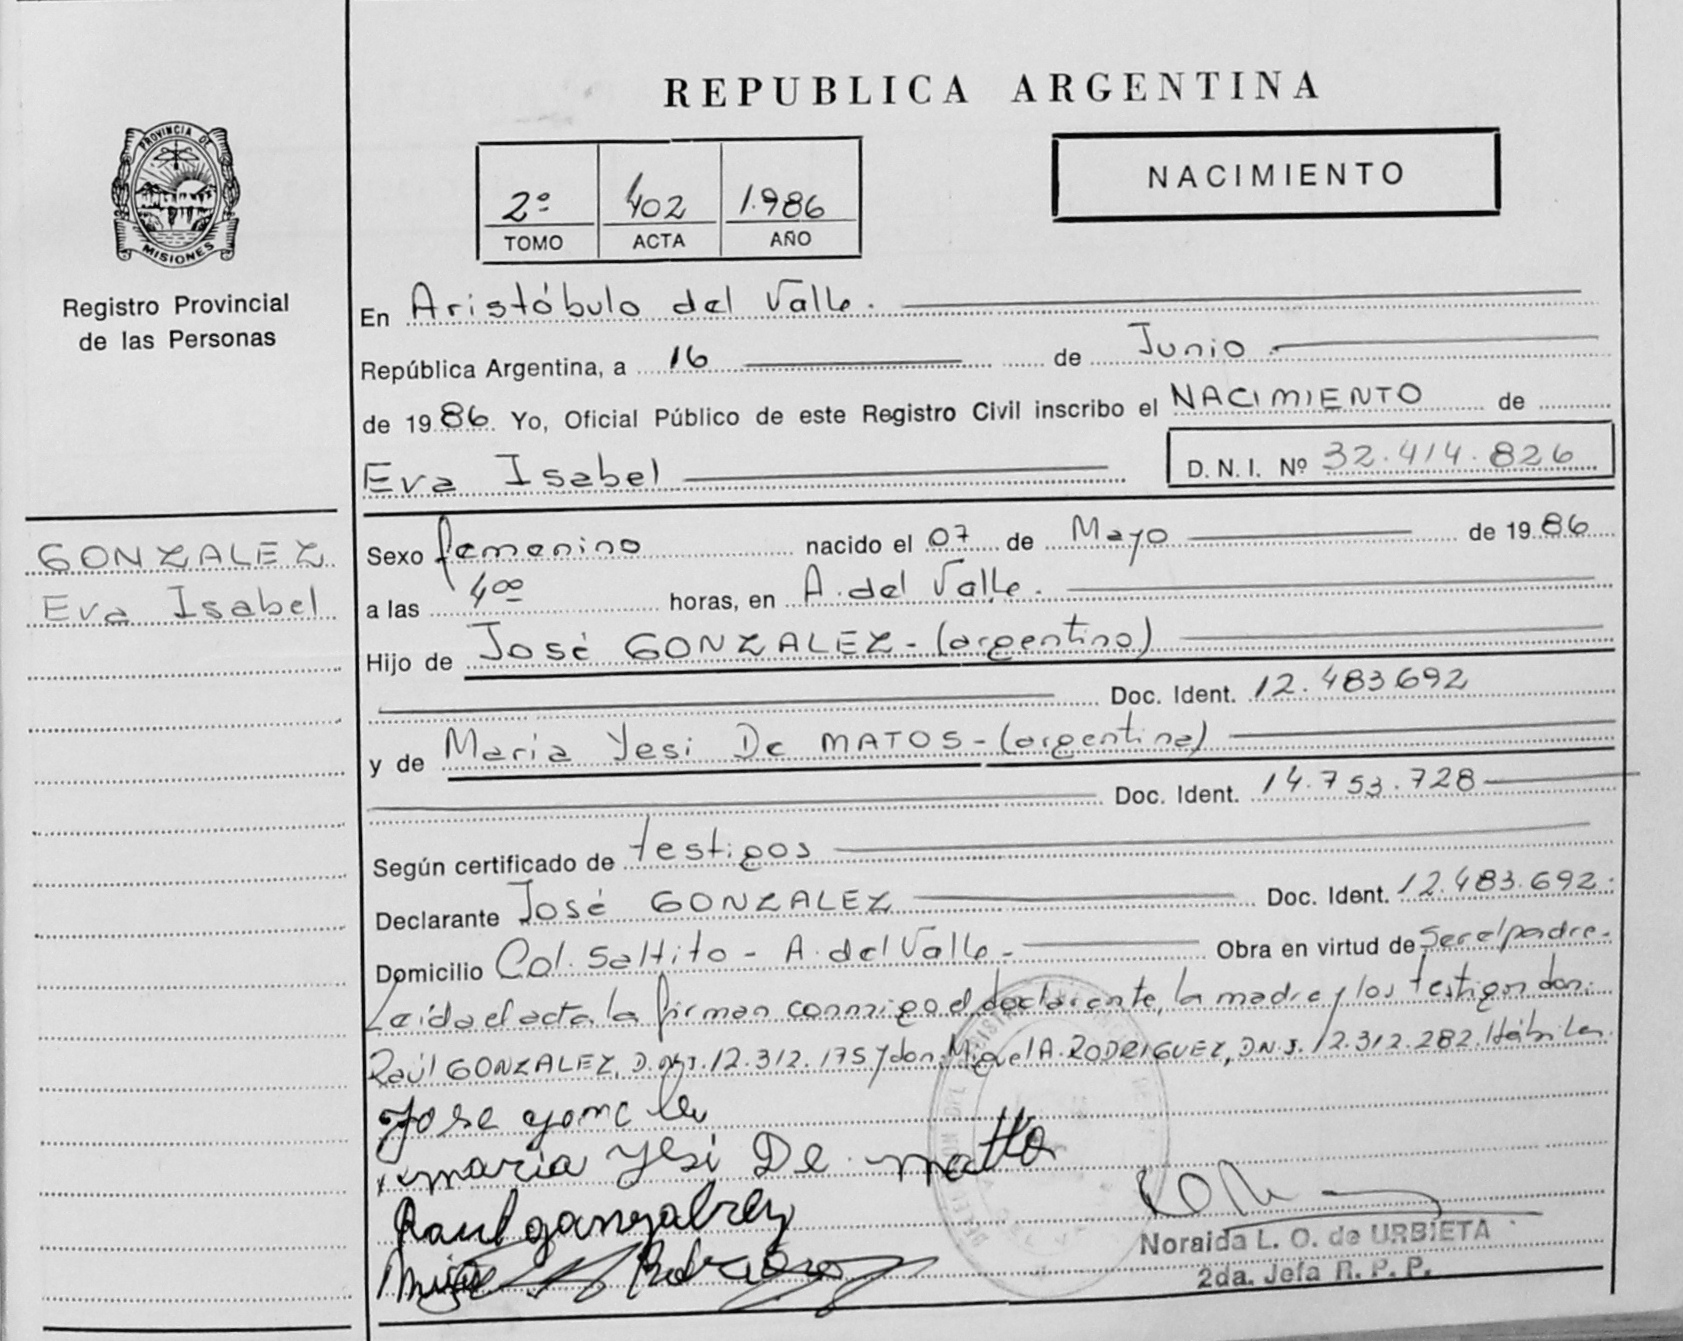 REPUBLICA ARGENTINA
PROVINCIA DE
MISIONES
Registro Provincial
de las Personas
2º 402 1.986
TOMO ACTA AÑO
NACIMIENTO
En Aristóbulo del Valle.
República Argentina, a 16 de Junio
de 1986 Yo, Oficial Público de este Registro Civil inscribo el NACIMIENTO de
Eva Isabel D. N. I. Nº 32.414.826
GONZALEZ
Eva Isabel
Sexo femenino nacido el 07 de Mayo de 1986
a las 4ºº horas, en A. del Valle.
Hijo de José GONZALEZ - (argentino)
Doc. Ident. 12.483692
y de Maria Yesi De MATOS - (argentina)
Doc. Ident. 14.753.728
Según certificado de testigos
Declarante José GONZALEZ Doc. Ident. 12.483.692.
Domicilio Col. Saltito - A. del Valle - Obra en virtud de Ser el padre.
Leida el acta, la firman conmigo el declarante, la madre y los testigos don:
Raúl GONZALEZ, D.N.I. 12.312.175 y don: Miguel A. RODRIGUEZ, DN.I. 12.312.282. Hábiles.
Jose
maria yesi De matto
Raul
Noraida L. O. de URBIETA
2da. Jefa R. P. P.